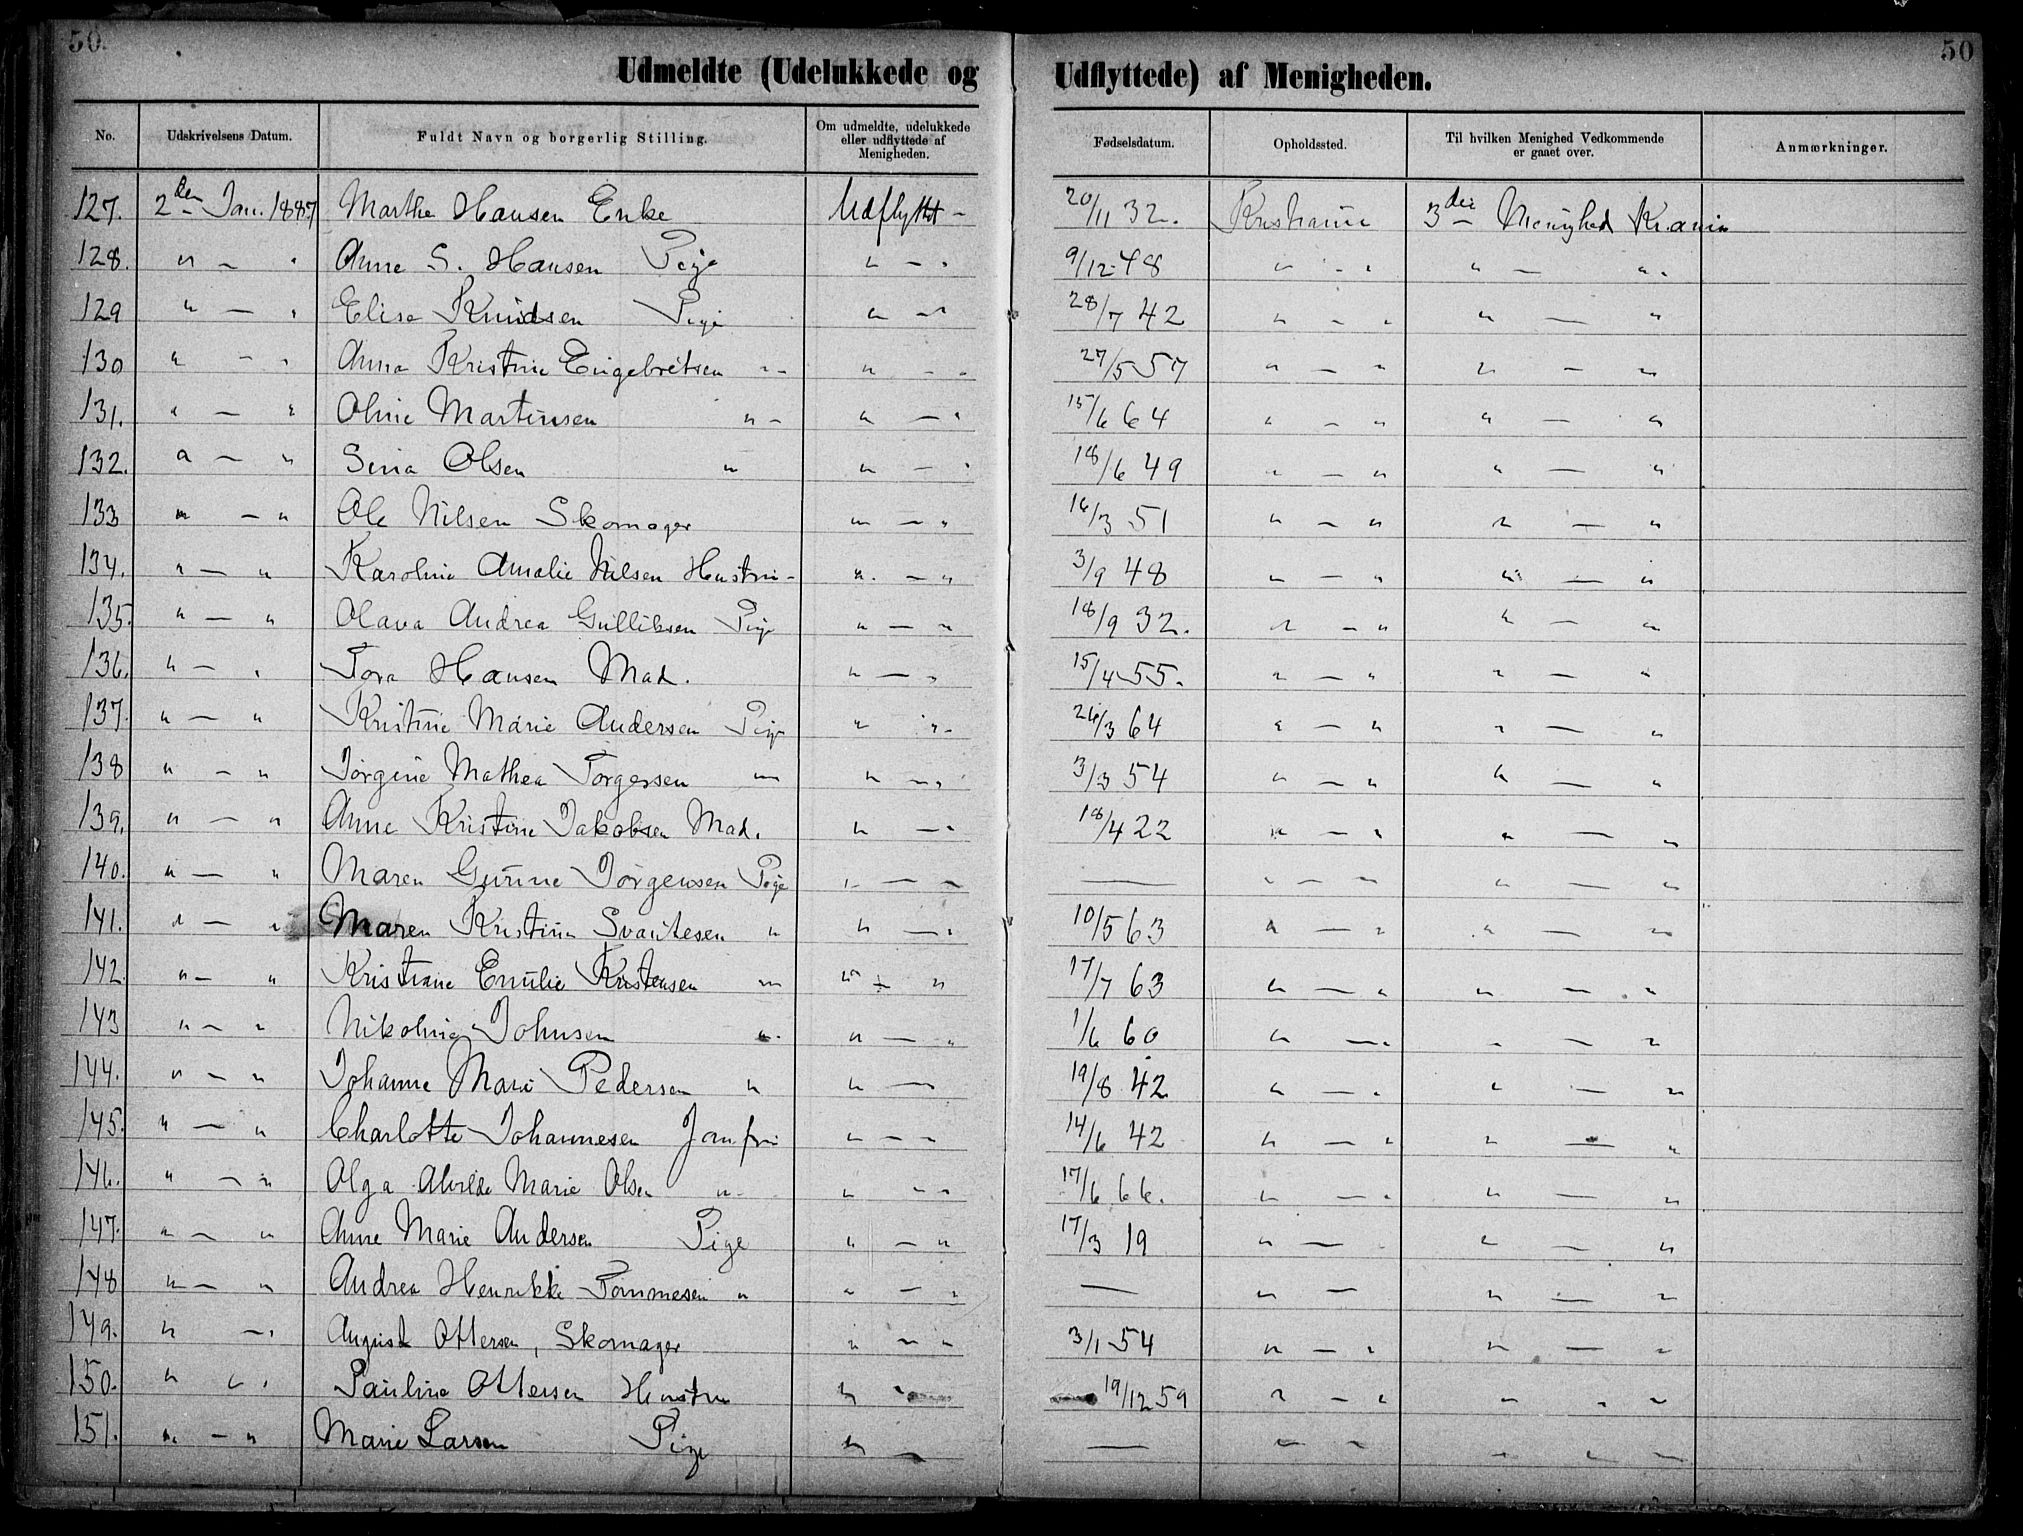 50. 50
Udmeldte (Udelukkede og Udflyttede) af Menigheden.
No. Udskrivelsens Datum. Fuldt Navn og borgerlig Stilling. Om udmeldte, udelukkede eller udflyttede af Menigheden. Fødselsdatum. Opholdssted. Til hvilken Menighed Vedkommende er gaaet over. Anmærkninger.
127. 2den Jan. 1887 Marthe Hansen Enke Udflyttet - 20/11 32. Kristiania 3die Menighed Kr.ania
128. " - " Anne S. Hansen Pige " - " 9/12 48 " - " " - "
129 " - " Elise Knudsen Pige " - " 28/7 42 " - " " - "
130 " - " Anna Kristine Engebretsen " - " - " 27/5 57 " - " " - "
131. " - " Oline Martinsen " - " - " 15/6 64 " - " " - "
132. " - " Sina Olsen " " - " 18/6 49 " - " " - "
133 " - " Ole Nilsen Skomager " - " 16/3 51 " - " " - "
134. " - " Karoline Amalie Nilsen Hustru - " - " 3/9 48 " - " " - "
135. " - " Olava Andrea Gulliksen Pige " - " 18/9 32. " - " " - "
136. " - " Tora Hansen Mad. " - " 15/4 55. " - " " - "
137. " - " Kristine Marie Andersen Pige " " - 26/3 64 " - " " - "
138 " - " Jørgine Mathea Torgersen " " - " 3/3 54 " - " " - "
139. " - " Anne Kristine Jakobsen Mad. " - " 18/4 22 " - " " - "
140. " - " Maren Gurine Jörgensen Pige " - " — " - " " - "
141. " - " Maren Kristine Svantesen " " - " 10/5 63 " - " " - "
142. " - " Kristiane Emilie Kristensen " " - " 17/7 63 " - " " - "
143 " - " Nikoline Johnsen " " - " 1/6 60 " - " " - "
144. " - " Johanne Marie Pedersen " " - " 19/8 42 " - " " - "
145. " - " Charlotte Johannesen Jomfru " - " 14/6 42 " - " " - "
146. " - " Olga Alvilde Marie Olsen " - " - " 17/6 66. " - " " - "
147. " - " Anne Marie Andersen Pige " - " 17/3 19 " - " - "
148 " - " Andrea Henrikke Tommesen " " - " — " - " - "
149. " - " August Ottersen, Skomager " - " 3/1 54 " - " " - "
150. " - " Pauline Ottersen Hustru " - 19/12 59 " - " " - "
151. " - " Marie Larsen Pige " - — " - " " - "